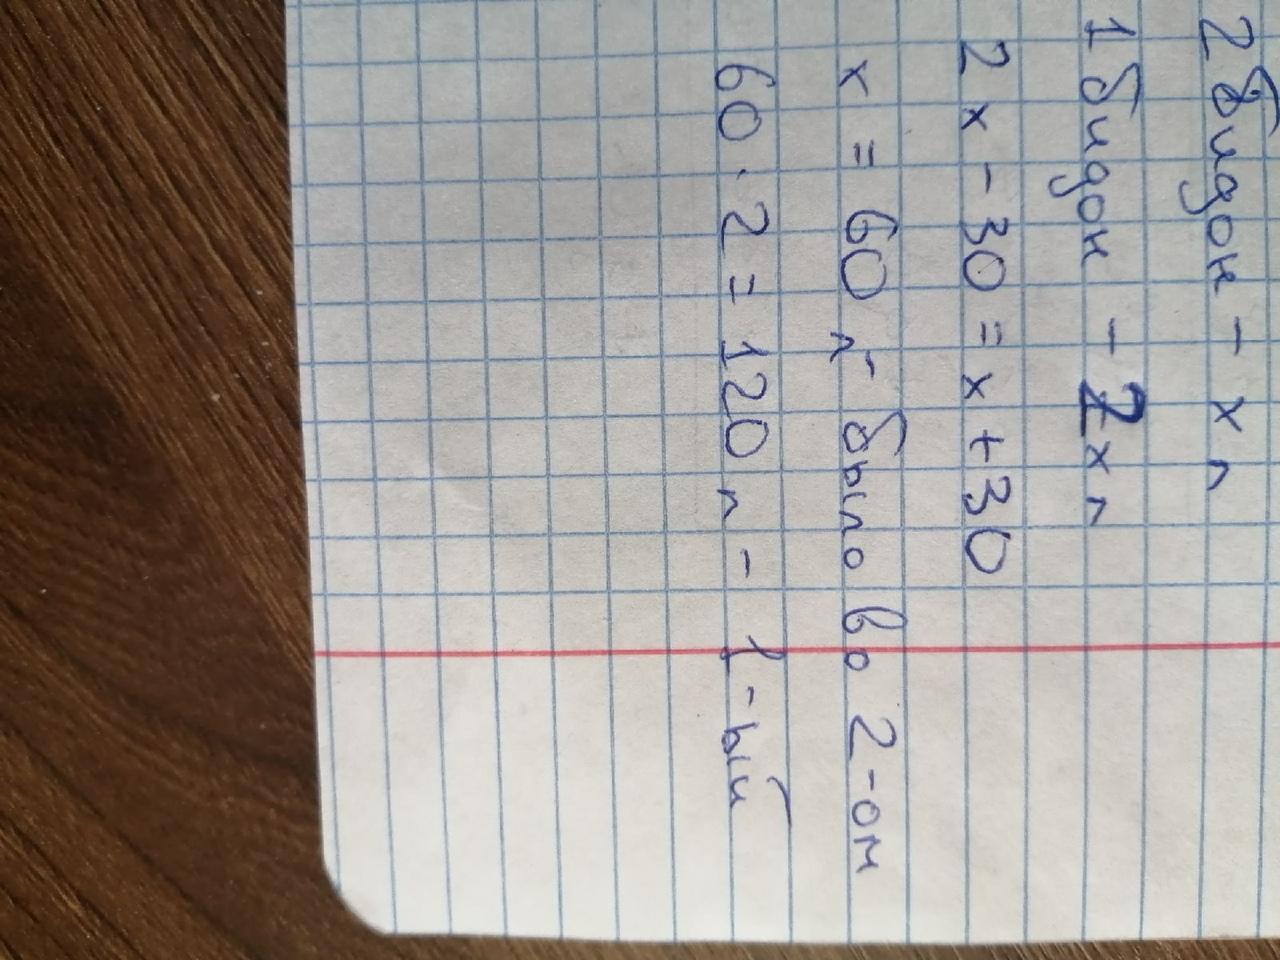 2 бидон - x л
1 бидон - 2x л
2x - 30 = x + 30
x = 60 л - было во 2-ом
60 · 2 = 120 л - 1-ый